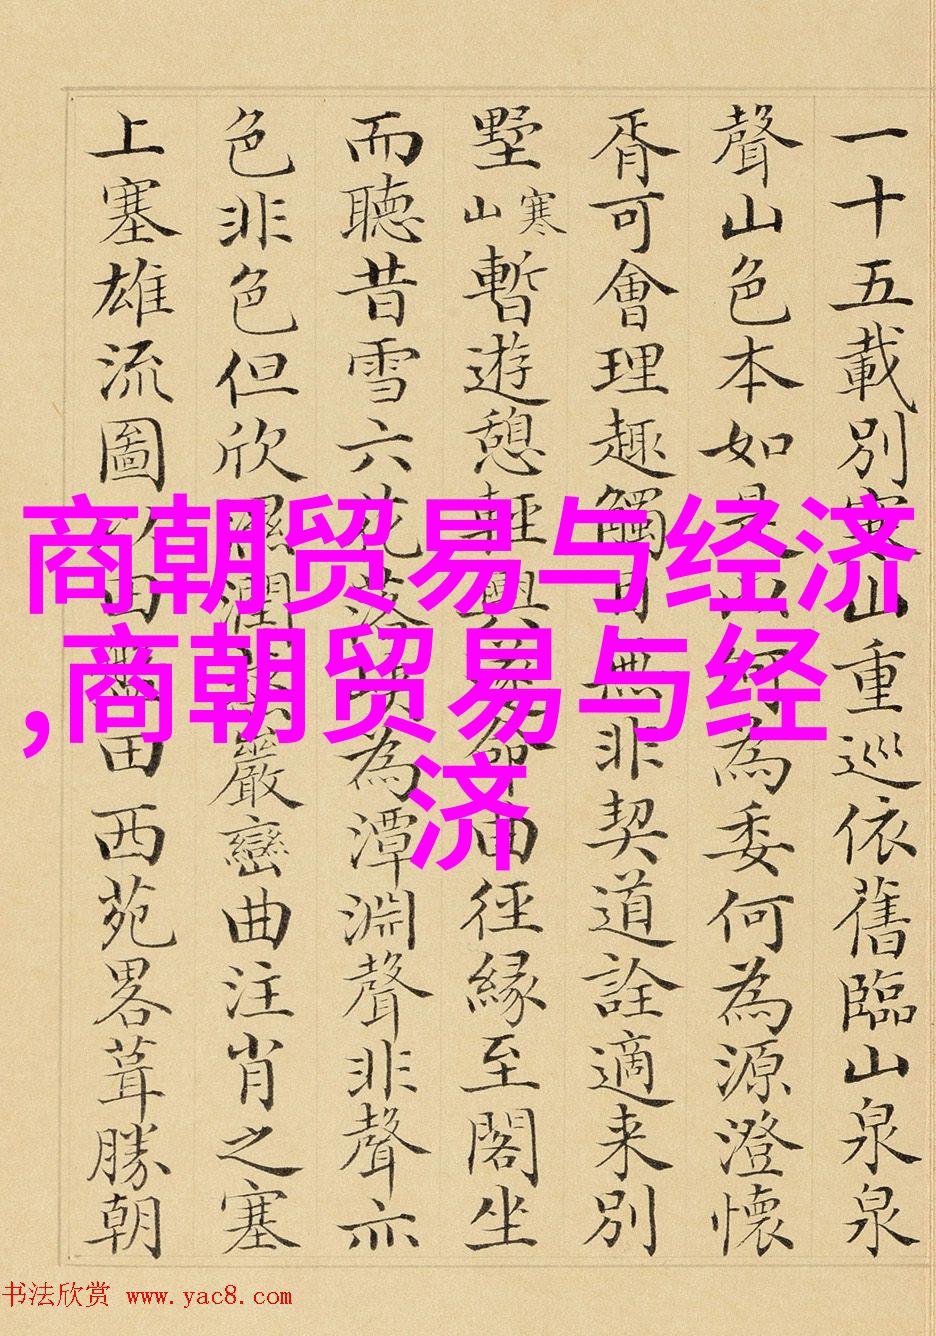 一十五載別寒山重巡依舊臨山泉泉
聲山色本如是何為委何為源澄懷
胥可會理趣觸目無非契道詮適来別
墅寒山暫遊憩輕輿命由徑緣至閣坐
而聽昔雪六花落為潭淵聲非聲亦
色非色但欣濕潤巖巒曲注肖之塞
上塞雄流圖田西苑畧葺勝朝
商朝贸易与经济
,商朝贸易与经
济
书法欣赏 www.yac8.com